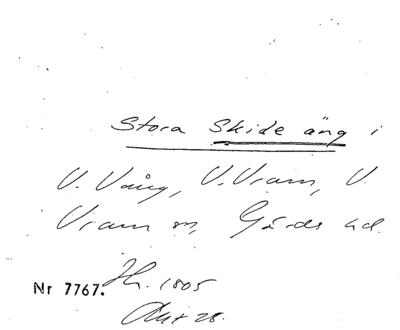 Stora Skide äng i
V. Vång, V. Vram, V.
Vram sn, Gärds hd.
Nr 7767. Jh. 1805
Akt 28.